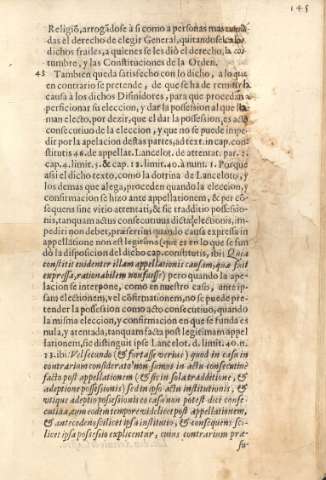 145
Religiõ, arrogãdose à si como a personas mas
das el derecho de elegir General, quitandose
dichos frailes, a quienes se les diò el derecho, la cos-
tumbre, y las Constituciones de la Orden.
43 Tambien queda satisfecho con lo dicho, a lo que
en contrario se pretende, de que se hà de remitir la
causa à los dichos Difinidores, para que procedan a
perficionar la eleccion, y dar la possession al que
man electo, por dezir, que el dar la possession, es acto
consecutiuo de la eleccion, y que no se puede impe-
dir por la apelacion destas partes, ad text. in cap. con-
stitutis 46. de appellat. Lancelot. de attentat. par. 2.
cap. 4. limit. 5. & cap. 12. limit. 40. à num. 1. Porque
assi el dicho texto, como la dotrina de Lanceloto, y
los demas que alega, proceden quando la eleccion, y
confirmacion se hizo ante appellationem, & per cõ-
sequens sine vitio attentati, & sic traditio possessio-
nis, tanquam actus consecutiuus dictæ electionis, im-
pediri non debet, præsertim quando causa expressa in
appellatione non est legitima (que es en lo que se fun
dò la disposicion del dicho cap. constitutis, ibi: Quia
constitit euidenter illam appellationis causam, quæ fuit
expressa, rationabilem non fuisse) pero quando la ape-
lacion se interpone, como en nuestro caso, ante ip-
sam electionem, vel cõfirmationem, no se puede pre-
tender la possession como acto consecutiuo, quando
la misma eleccion, y confirmacion en que se funda es
nula, y atentada, tanquam facta post legitimam appel
lationem, sic distinguit ipse Lancelot. d. limit. 40. n.
13. ibi: Vel secundo (& fortasse verius) quod in casu in
contrarium considerato non sumus in actu consecutiuo
facto post appellationem (& sic in sola traditione, &
adeptione possessionis) sed in ipso actu institutionis, &
vtique adeptio possessionis eo casu non potest dici conse-
cutiua, cum eodem tempore videlicet post appellationem,
& antecedens scilicet ipsa institutio, & consequens sci-
licet ipsa possessio explicentur, cuius contrarium præ-
su-